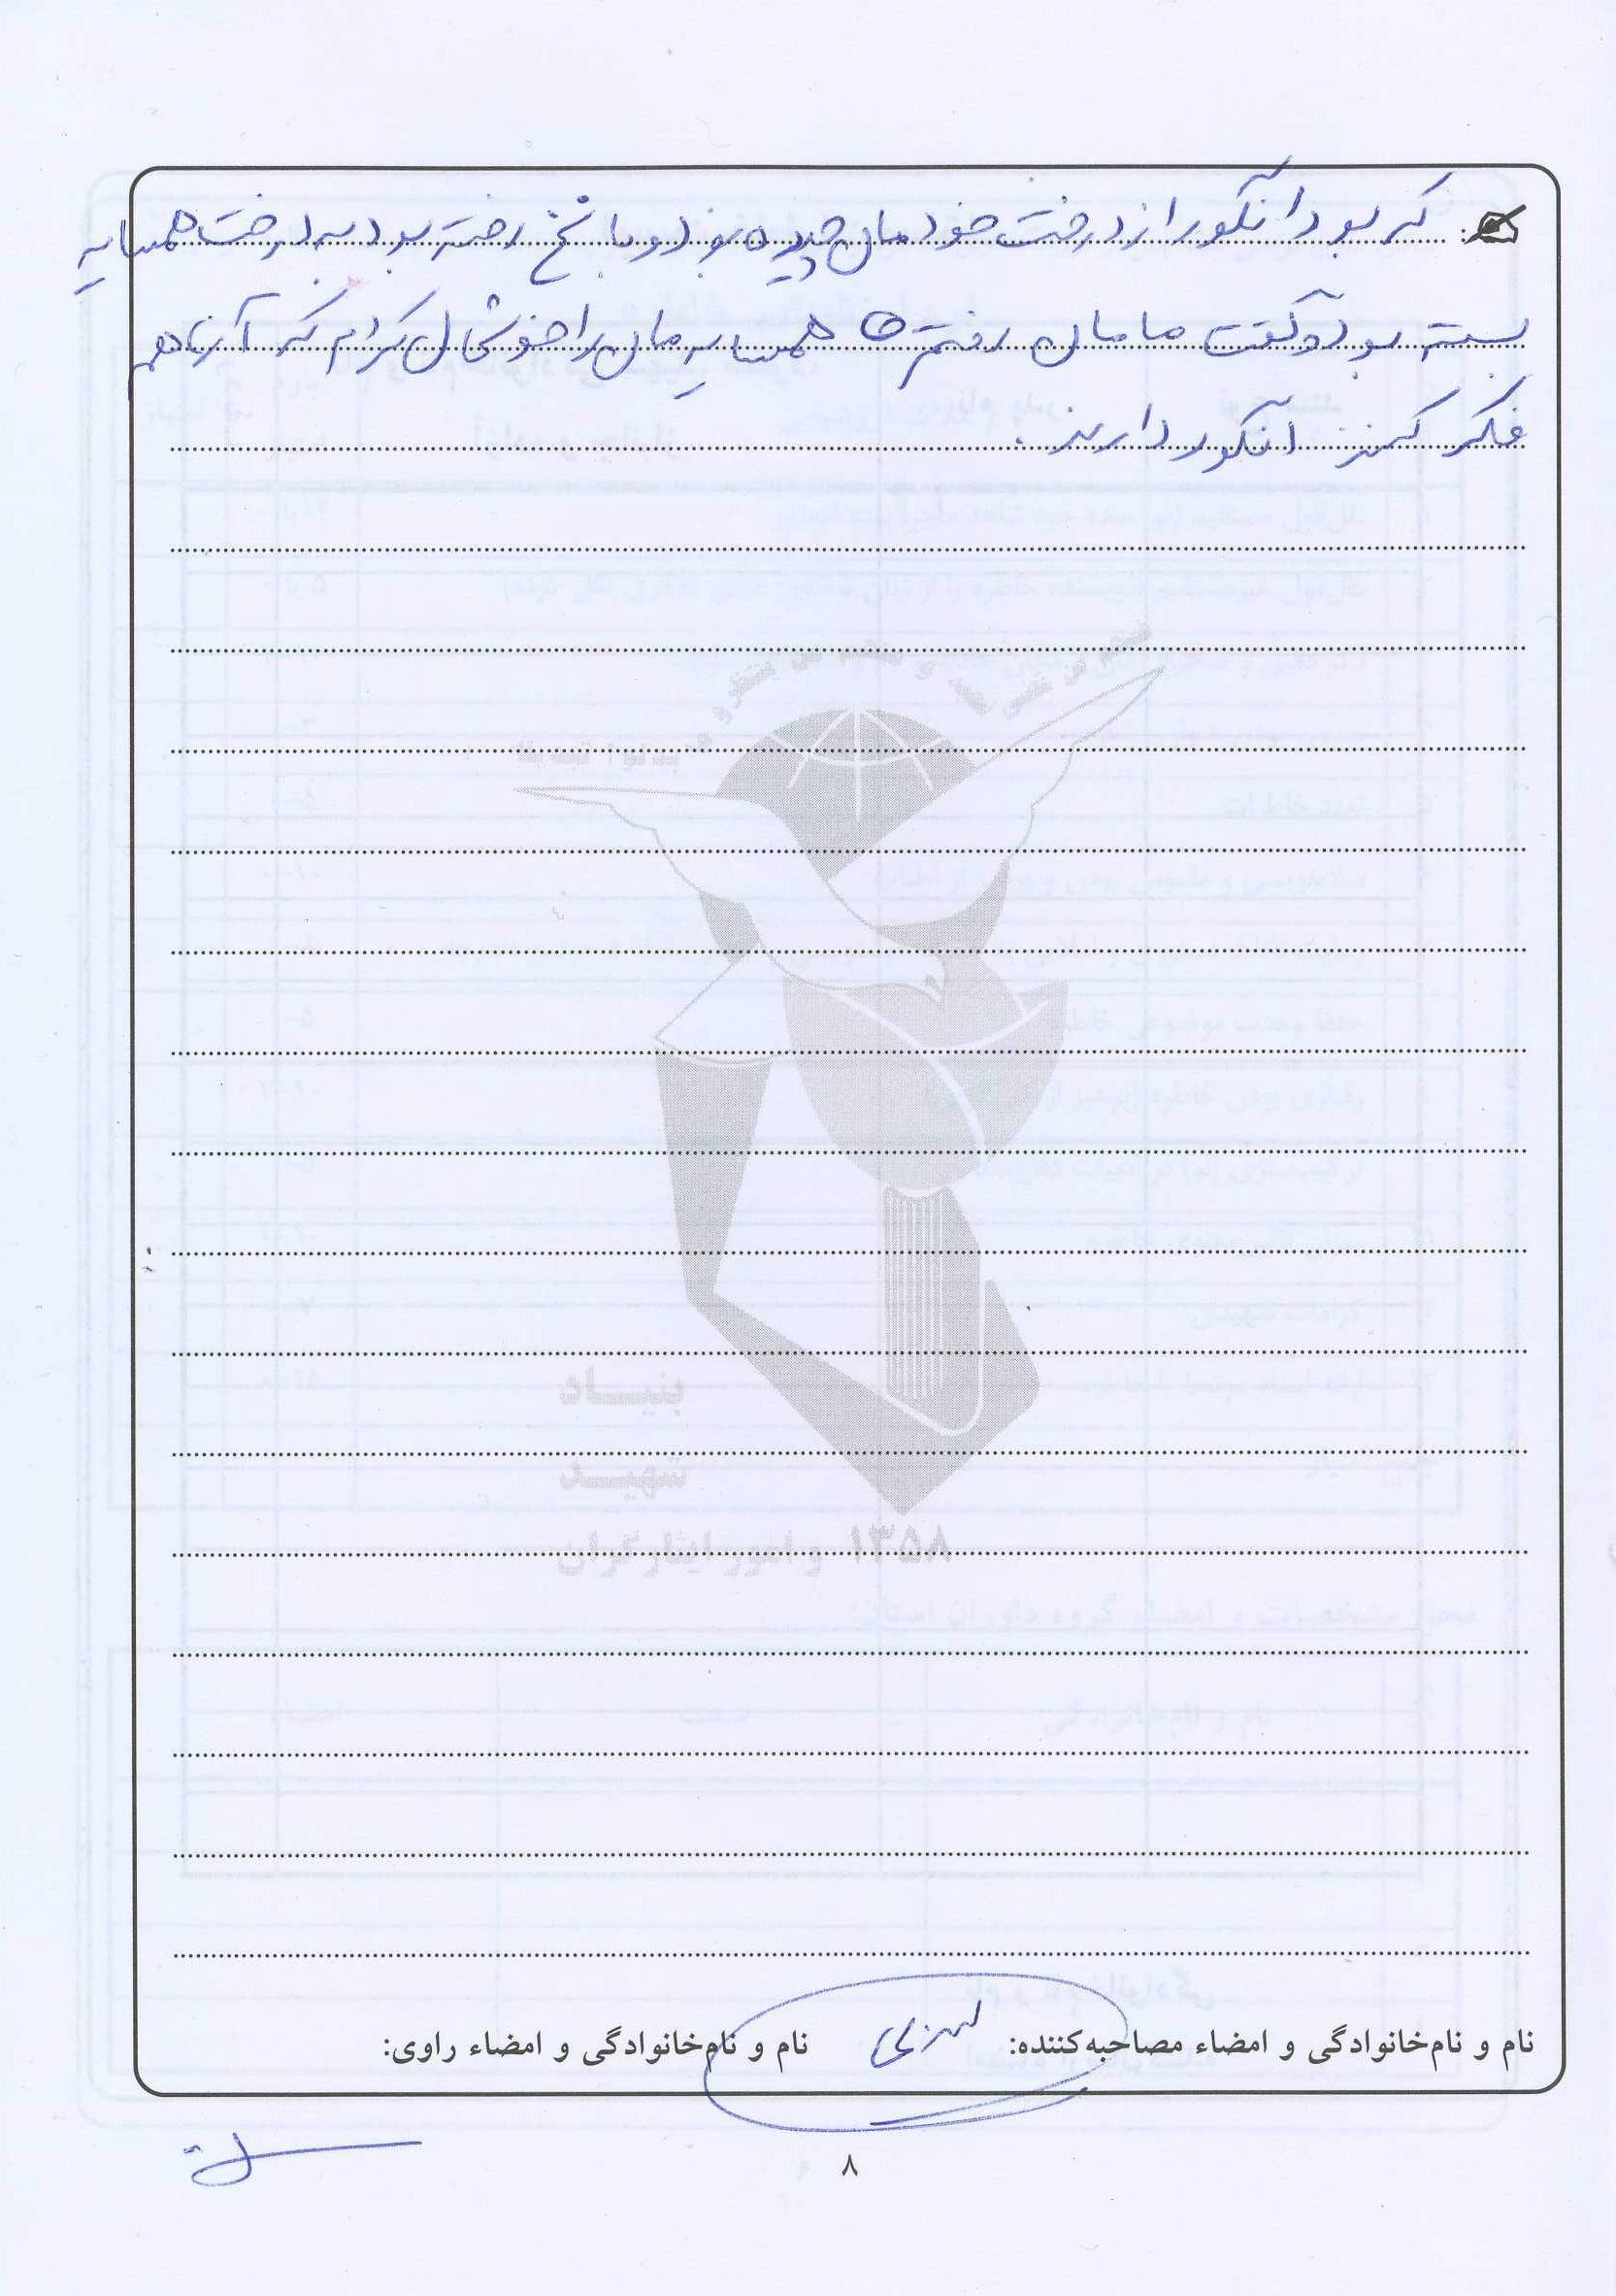 کرده بود انگور را از درخت خودمان چیده بود و با نخ رفته بود به درخت همسایه
بسته بود و گفت مامان رفتم تا همسایه مان را خوشحال کردم که آنها هم
فکر کنند انگور دارند.
بنیاد
شهید
و امور ایثارگران ۱۳۵۸
نام و نام‌خانوادگی و امضاء مصاحبه‌کننده: نام و نام‌خانوادگی و امضاء راوی:
۸